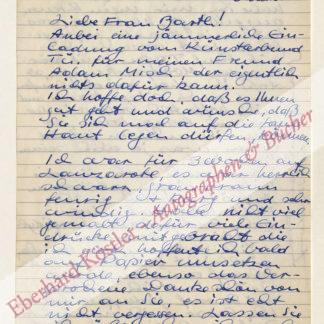 Liebe Frau Barth!
Anbei eine jämmerliche Ein-
ladung vom Künstlerbund
Tü. für meinen Freund
Adam Misch, der eigentlich
nichts dafür kann.
Ich hoffe doch, daß es Ihnen
gut geht und wünsche, daß
Sie Sich noch auf die faule
Haut legen dürfen,
Ich war für 3 Wochen auf
Lanzarote, es war herrlich
schwarz, grau, braun
feurig und sehr
windig. Habe nicht viel
gemacht dafür viele Ein-
drücke mitgebracht die
ich hoffentlich bald
aufs Papier umsetzen
werde, ebenso das Ver-
sprochene Dankeschön von
mir an Sie, es ist echt
nicht vergessen. Lassen Sie
Eberhard Köstler Autographen & Bücher